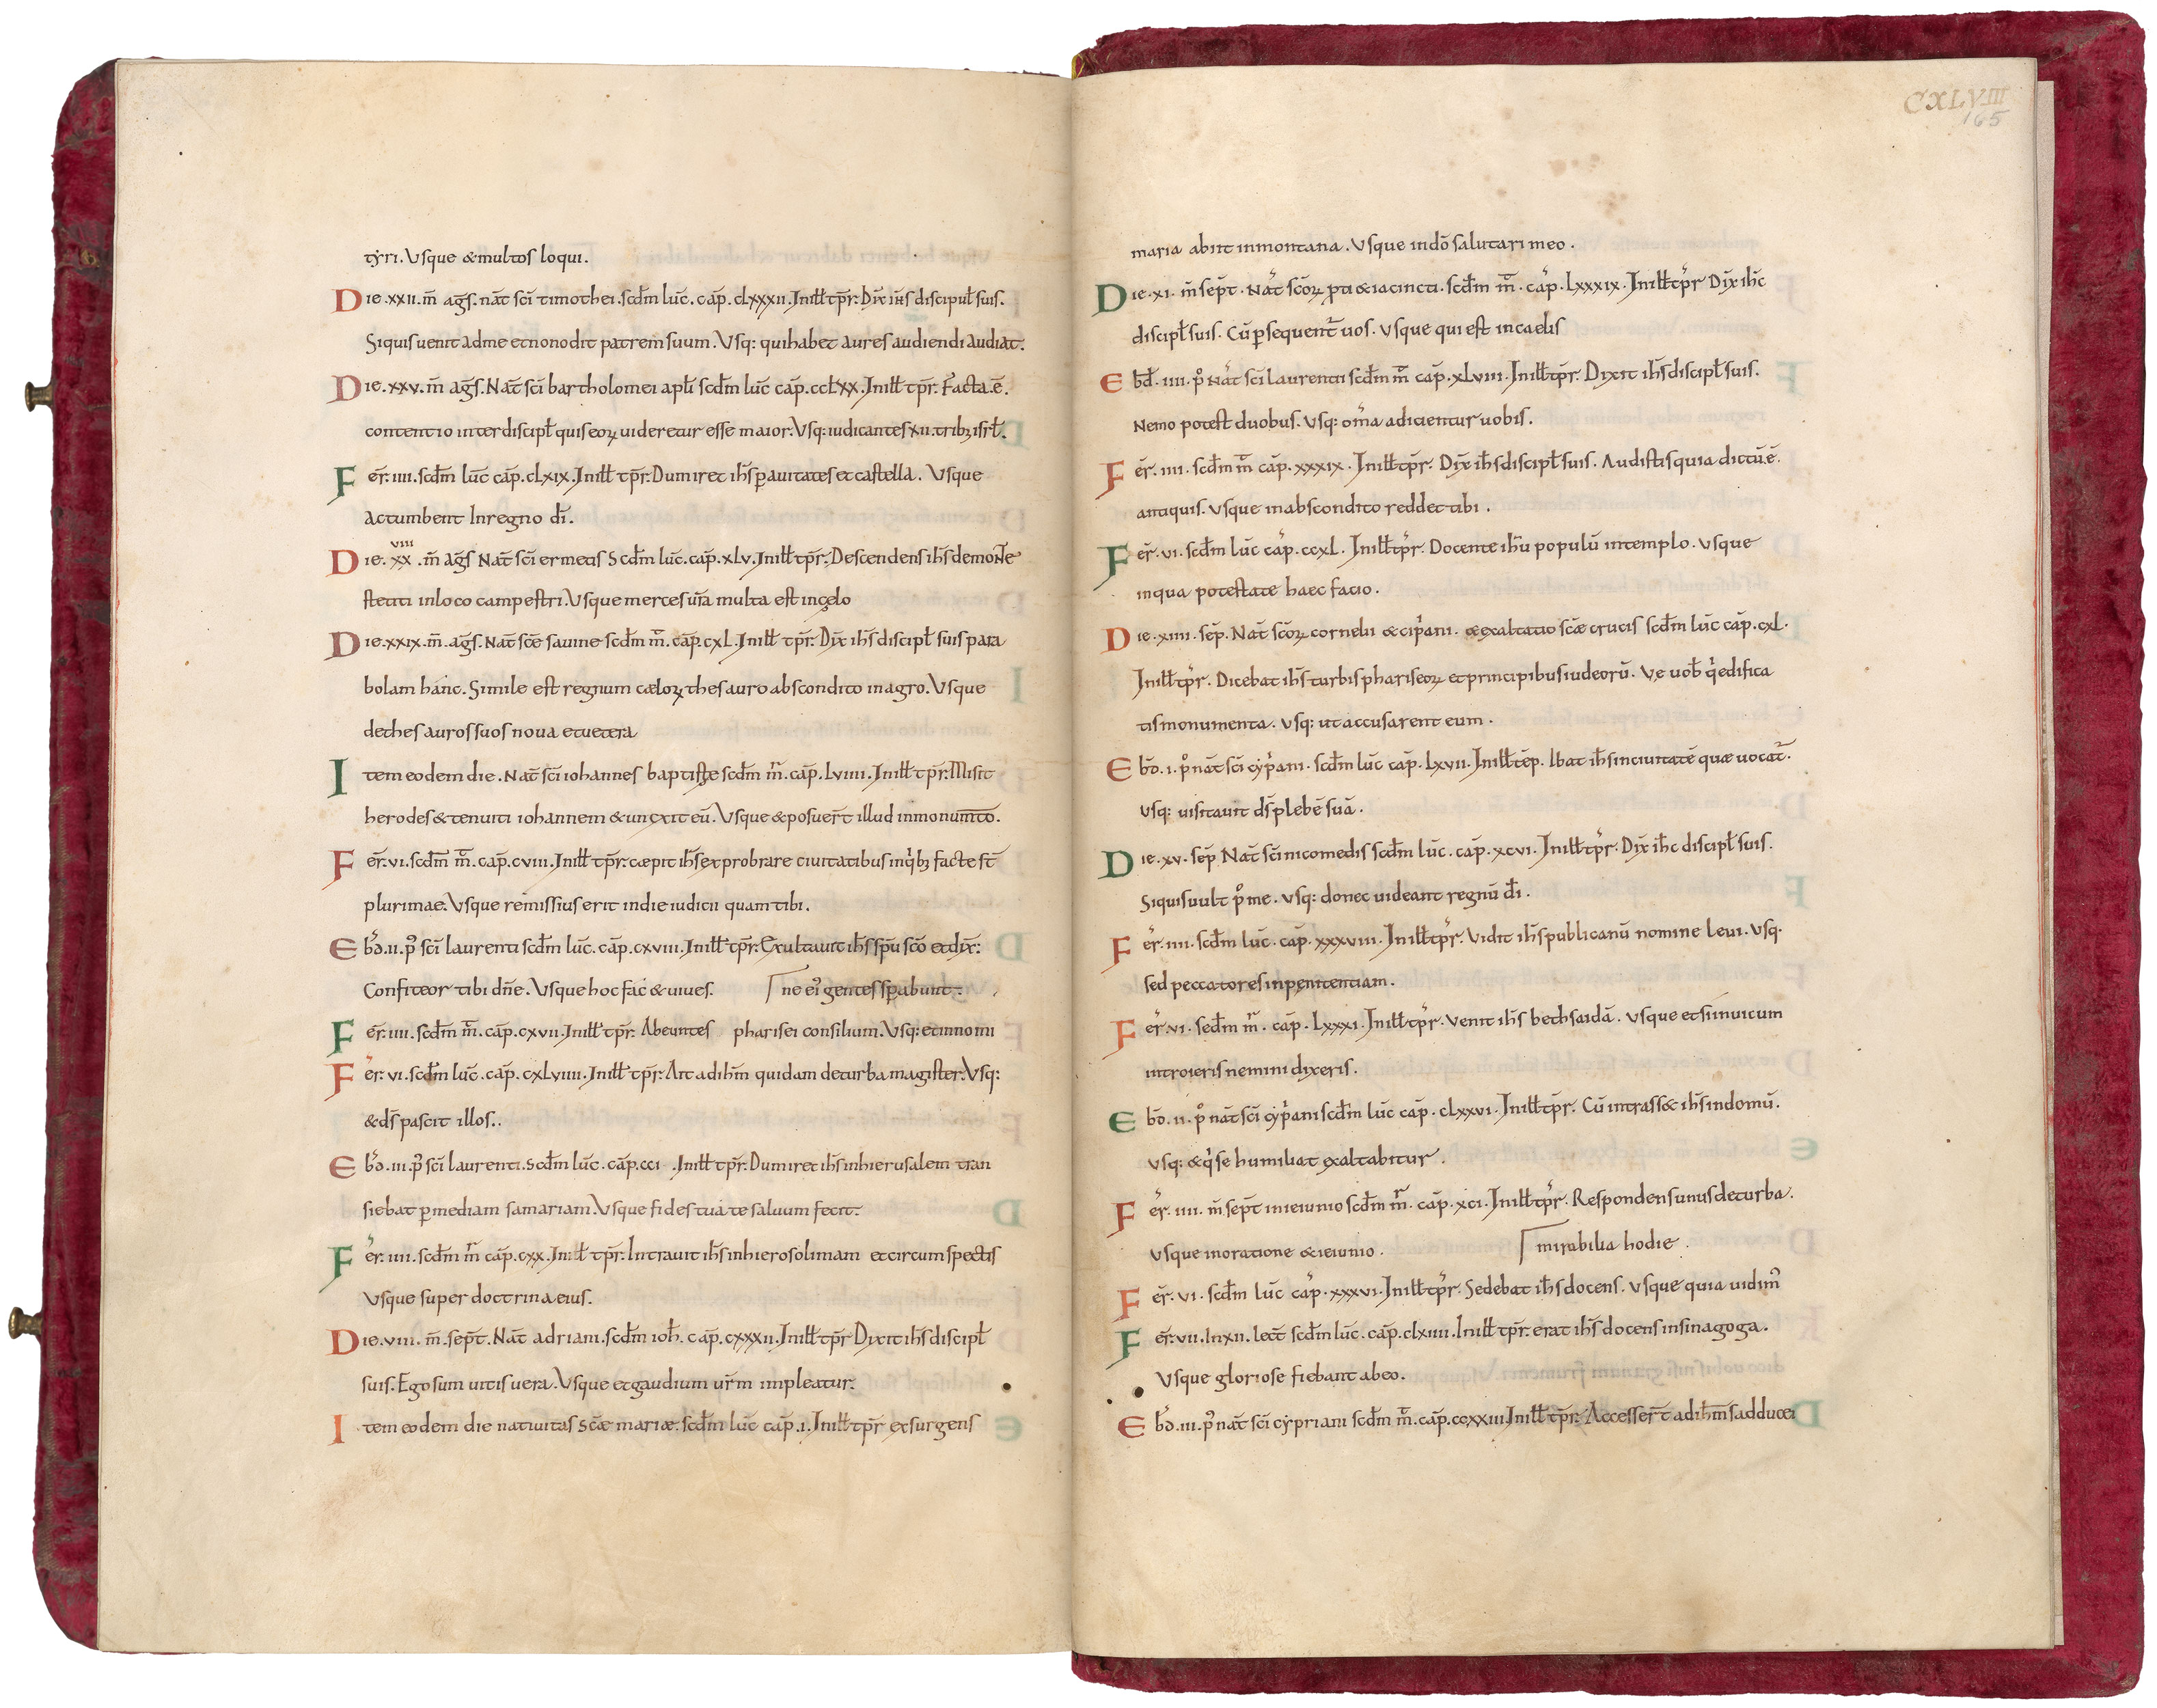 tyri. Usque & multos loqui.
Die. xxii. m̄ aḡs. nāt sc̄i timothei. scd̄m lūc. cāp. clxxxii. In ill̄ tp̄r. Dix̄ ih̄s discipul̄ suis.
Siquis uenit adme et non odit patrem suum. Usq: qui habet aures audiendi audiat.
Die. xxv. m̄ aḡs. Nāt sc̄i bartholomei apl̄i scd̄m lūc cāp. cclxx. In ill̄ tp̄r. Facta. ē.
contentio inter discipl̄ quis eoꝝ uideretur esse maior. Usq: iudicantes xii. tribꝫ isrl̄.
Fēr. iiii. scd̄m lūc cāp. clxix. In ill̄ tp̄r. Dum iret ih̄s ꝑ ciuitates et castella. Usque
actumbent In regno dī.
viii
Die. xx. m̄ aḡs Nāt sc̄i ermetis Scd̄m lūc. cāp. xlv. In ill̄ tp̄r. Descendens ih̄s de monte
stetit in loco campestri. Usque merces ur̄a multa est in cęlo
Die. xxix. m̄. aḡs. Nāt sc̄e sauine scd̄m m̄. cāp. cxl. In ill̄ tp̄r. Dix̄ ih̄s discipl̄ suis para
bolam hanc. Simile est regnum cæloꝝ thesauro abscondito in agro. Usque
de thesauros suos noua et uetera
Item eodem die. Nāt sc̄i iohannes baptiste scd̄m m̄. cāp. lviiii. In ill̄ tp̄r. Misit
herodes & tenuit iohannem & uinxit eū. Usque & posuer̄t illud in monum̄to.
Fēr. vi. scd̄m m̄. cāp. cviii. In ill̄ tp̄r. cæpit ih̄s exprobrare ciuitatibus in qͥbꝫ facte st̄
plurimae. Usque remissius erit in die iudicii quam tibi.
Ebd̄. ii. pͦ sc̄i laurenti scd̄m lūc. cāp. cxviii. In ill̄ tp̄r. Exultauit ih̄s sp̄u sc̄o et dix̄:
Confiteor tibi dn̄e. Usque hoc fac & uiues. ne ei᾽ gentes sꝑabunt.
Fēr. iiii. scd̄m m̄. cāp. cxvii. In ill̄ tp̄r. Abeuntes pharisei consilium. Usq: et in nomi
Fēr. vi. scd̄m lūc. cāp. cxlviiii. In ill̄ tp̄r. Ait ad ih̄m quidam de turba magister. Usq:
& ds̄ pascit illos.
Ebd̄. iii. pͦ sc̄i laurenti. scd̄m lūc. cāp. cci. In ill̄ tp̄r. Dum iret ih̄s in hierusalem tran
siebat ꝑ mediam samariam. Usque fides tua te saluum fecit.
Fēr. iiii. scd̄m m̄ cāp. cxx. In ill̄ tp̄r. Intrauit ih̄s in hierosolimam et circumspectis
Usque super doctrina eius.
Die. viii. m̄. sep̄t. Nāt adriani. scd̄m ioh̄. cāp. cxxxii. In ill̄ tp̄r Dixit ih̄s discipl̄
suis. Ego sum uitis uera. Usque et gaudium ur̄m impleatur.
Item eodem die natiuitas Scæ mariæ. scd̄m lūc cāp. i. In ill̄ tp̄r exsurgens
CXLVIII
165
maria abiit in montana. Usque in dō salutari meo.
Die. xi. m̄ sep̄t. Nāt sc̄oꝝ ꝓti & iacincti. scd̄m m̄. cāp. lxxxix. In ill̄ tp̄r Dix̄ ih̄c
discipl̄ suis. Cū ꝑsequent᾽ uos. Usque qui est in caelis
Ebd̄. iiii. pͦ Nāt sc̄i laurenti scd̄m m̄ cāp. xlviii. In ill̄ tp̄r. Dixit ih̄s discipl̄ suis.
Nemo potest duobus. Usq: om̄a adicientur uobis.
Fēr. iiii. scd̄m m̄ cāp. xxxix. In ill̄ tp̄r. Dix̄ ih̄s discipl̄ suis. Audistis quia dictū. ē.
antiquis. Usque in abscondito reddet tibi.
Fēr. vi. scd̄m lūc cāp. ccxl. In ill̄ tp̄r. Docente ih̄u populū in templo. Usque
in qua potestate haec facio.
Die. xiiii. sep̄. Nāt sc̄oꝝ cornelii & cip̄ani. & exaltatio scæ crucis scd̄m lūc cāp. cxl.
In ill̄ tp̄r. Dicebat ih̄s turbis phariseoꝝ et principibus iudeorū. Ve uob̄ qͥ edifica
tis monumenta. Usq: ut accusarent eum.
Ebd̄. i. pͦ nāt sc̄i cyp̄ani. scd̄m lūc cāp. lxvii. In ill̄ tēp. Ibat ih̄s in ciuitatē quæ uocat᾽.
Usq: uisitauit ds̄ plebē suā.
Die. xv. sep̄ Nāt sc̄i nicomedis scd̄m lūc. cāp. xcvi. In ill̄ tp̄r. Dix̄ ih̄c discipl̄ suis.
Siquis uult pͦ me. Usq: donec uideant regnū dī.
Fēr. iiii. scd̄m lūc. cāp. xxxviii. In ill̄ tp̄r. Vidit ih̄s publicanū nomine leui. Usq.
sed peccatores in penitentiam.
Fēr. vi. scd̄m m̄. cāp. lxxxi. In ill̄ tp̄r. Venit ih̄s bethsaidā. Usque et si in uicum
introieris nemini dixeris.
Ebd̄. ii. pͦ nāt sc̄i cyp̄ani scd̄m lūc cāp. clxxvi. In ill̄ tp̄r. Cū intrass& ih̄s in domū.
Usq: & qͥ se humiliat exaltabitur.
Fēr. iiii. m̄ sep̄t in ieiunio scd̄m m̄. cāp. xci. In ill̄ tp̄r. Respondens unus de turba.
Usque in oratione & ieiunio. mirabilia hodie.
Fēr. vi. scd̄m lūc cāp. xxxvi. In ill̄ tp̄r. Sedebat ih̄s docens. Usque quia uidim᾽
Fēr. vii. In xii. lect̄ scd̄m lūc. cāp. clxiiii. In ill̄ tp̄r. erat ih̄s docens in sinagoga.
Usque gloriose fiebant ab eo.
Ebd̄. iii. pͦ nāt sc̄i cypriani scd̄m m̄. cāp. ccxxiii. In ill̄ tp̄r. Accesser̄t ad ih̄m sadducei